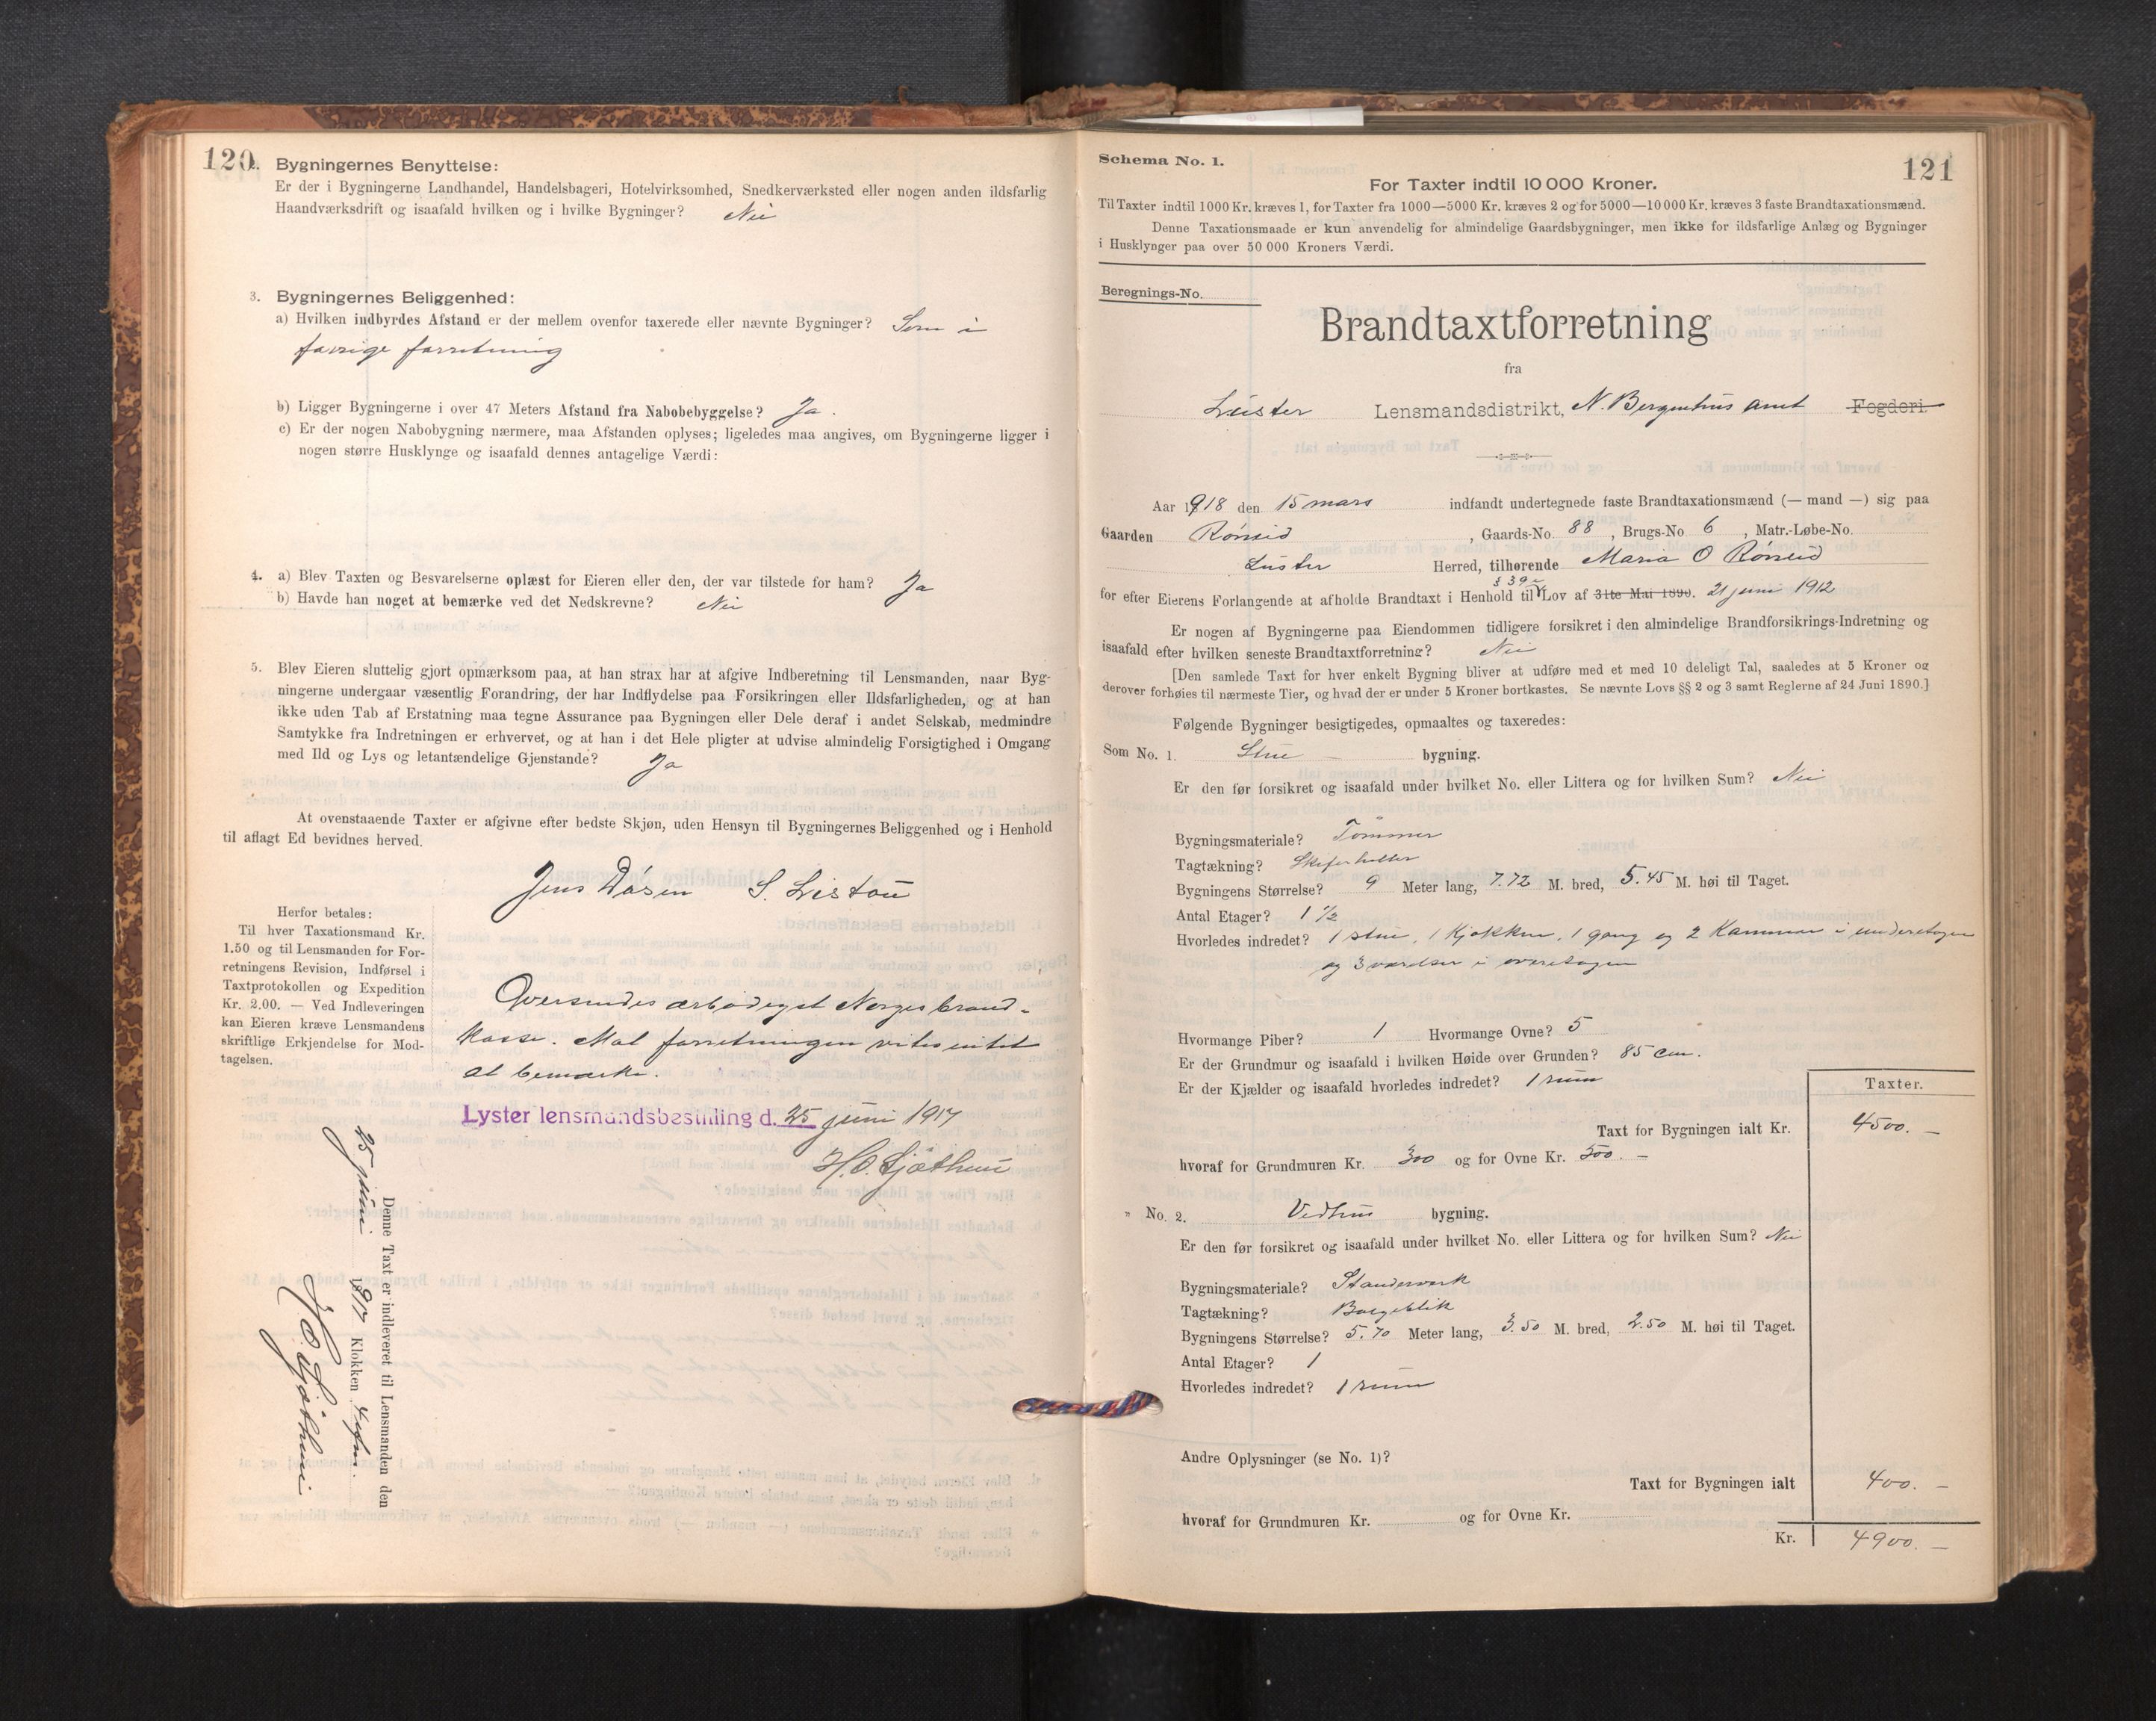 120.
2. Bygningernes Benyttelse:
Er der i Bygningerne Landhandel, Handelsbageri, Hotelvirksomhed, Snedkerværksted eller nogen anden ildsfarlig
Haandværksdrift og isaafald hvilken og i hvilke Bygninger? Nei
3. Bygningernes Beliggenhed:
a) Hvilken indbyrdes Afstand er der mellem ovenfor taxerede eller nævnte Bygninger? Som i
forrige forretning
b) Ligger Bygningerne i over 47 Meters Afstand fra Nabobebyggelse? Ja.
c) Er der nogen Nabobygning nærmere, maa Afstanden oplyses; ligeledes maa angives, om Bygningerne ligger i
nogen større Husklynge og isaafald dennes antagelige Værdi:
4. a) Blev Taxten og Besvarelserne oplæst for Eieren eller den, der var tilstede for ham? Ja
b) Havde han noget at bemærke ved det Nedskrevne? Nei
5. Blev Eieren sluttelig gjort opmærksom paa, at han strax har at afgive Indberetning til Lensmanden, naar Byg-
ningerne undergaar væsentlig Forandring, der har Indflydelse paa Forsikringen eller Ildsfarligheden, og at han
ikke uden Tab af Erstatning maa tegne Assurance paa Bygningen eller Dele deraf i andet Selskab, medmindre
Samtykke fra Indretningen er erhvervet, og at han i det Hele pligter at udvise almindelig Forsigtighed i Omgang
med Ild og Lys og letantændelige Gjenstande? Ja
At ovenstaaende Taxter er afgivne efter bedste Skjøn, uden Hensyn til Bygningernes Beliggenhed og i Henhold
til aflagt Ed bevidnes herved.
Jens Døsen S. Listou
Herfor betales:
Til hver Taxationsmand Kr.
1.50 og til Lensmanden for For-
retningens Revision, Indførsel i
Taxtprotokollen og Expedition
Kr. 2.00. — Ved Indleveringen
kan Eieren kræve Lensmandens
skriftlige Erkjendelse for Mod-
tagelsen.
Oversendes ærbødigst Norges brand-
kasse. Mot forretningen vites intet
at bemærke.
Lyster lensmandsbestilling d. 25 juni 1917
Denne Taxt er indleveret til Lensmanden den
25 juni 1917 Klokken 4
Schema No. 1.
121
For Taxter indtil 10 000 Kroner.
Til Taxter indtil 1000 Kr. kræves 1, for Taxter fra 1000—5000 Kr. kræves 2 og for 5000—10 000 Kr. kræves 3 faste Brandtaxationsmænd.
Denne Taxationsmaade er kun anvendelig for almindelige Gaardsbygninger, men ikke for ildsfarlige Anlæg og Bygninger
i Husklynger paa over 50 000 Kroners Værdi.
Beregnings-No.
Brandtaxtforretning
fra
Luster Lensmandsdistrikt, N. Bergenhus amt Fogderi
Aar 1918 den 15 mars indfandt undertegnede faste Brandtaxationsmænd (— mand —) sig paa
Gaarden Røneid, Gaards-No. 88, Brugs-No 6, Matr.-Løbe-No.
Luster Herred, tilhørende Maria O Røneid
§ 39
for efter Eierens Forlangende at afholde Brandtaxt i Henhold til Lov af 31te Mai 1890. 21 juni 1912
Er nogen af Bygningerne paa Eiendommen tidligere forsikret i den almindelige Brandforsikrings-Indretning og
isaafald efter hvilken seneste Brandtaxtforretning? Nei
[Den samlede Taxt for hver enkelt Bygning bliver at udføre med et med 10 deleligt Tal, saaledes at 5 Kroner og
derover forhøies til nærmeste Tier, og hvad der er under 5 Kroner bortkastes. Se nævnte Lovs §§ 2 og 3 samt Reglerne af 24 Juni 1890.]
Følgende Bygninger besigtigedes, opmaaltes og taxeredes:
Som No. 1. Stue bygning.
Er den før forsikret og isaafald under hvilket No. eller Littera og for hvilken Sum? Nei
Bygningsmateriale? Tømmer
Tagtækning? Skiferheller
Bygningens Størrelse? 9 Meter lang, 7.72 M. bred, 5.45 M. høi til Taget.
Antal Etager? 1 1/2
Hvorledes indredet? 1 stue, 1 kjøkken, 1 gang og 2 kammer i underetagen
og 3 værelser i overetagen
Hvormange Piber? 1 Hvormange Ovne? 5
Er der Grundmur og isaafald i hvilken Høide over Grunden? 85 cm.
Er der Kjælder og isaafald hvorledes indredet? 1 rum
Taxter.
Taxt for Bygningen ialt Kr. 4500. —
hvoraf for Grundmuren Kr. 300 og for Ovne Kr. 500. —
" No. 2. Vedhus bygning.
Er den før forsikret og isaafald under hvilket No. eller Littera og for hvilken Sum? Nei
Bygningsmateriale? Standerverk
Tagtækning? Bølgeblik
Bygningens Størrelse? 5.70 Meter lang, 3.50 M. bred, 2.50 M. høi til Taget.
Antal Etager? 1
Hvorledes indredet? 1 rum
Andre Oplysninger (se No. 1)?
Taxt for Bygningen ialt 400. —
hvoraf for Grundmuren Kr. og for Ovne Kr.
Kr. 4900. —